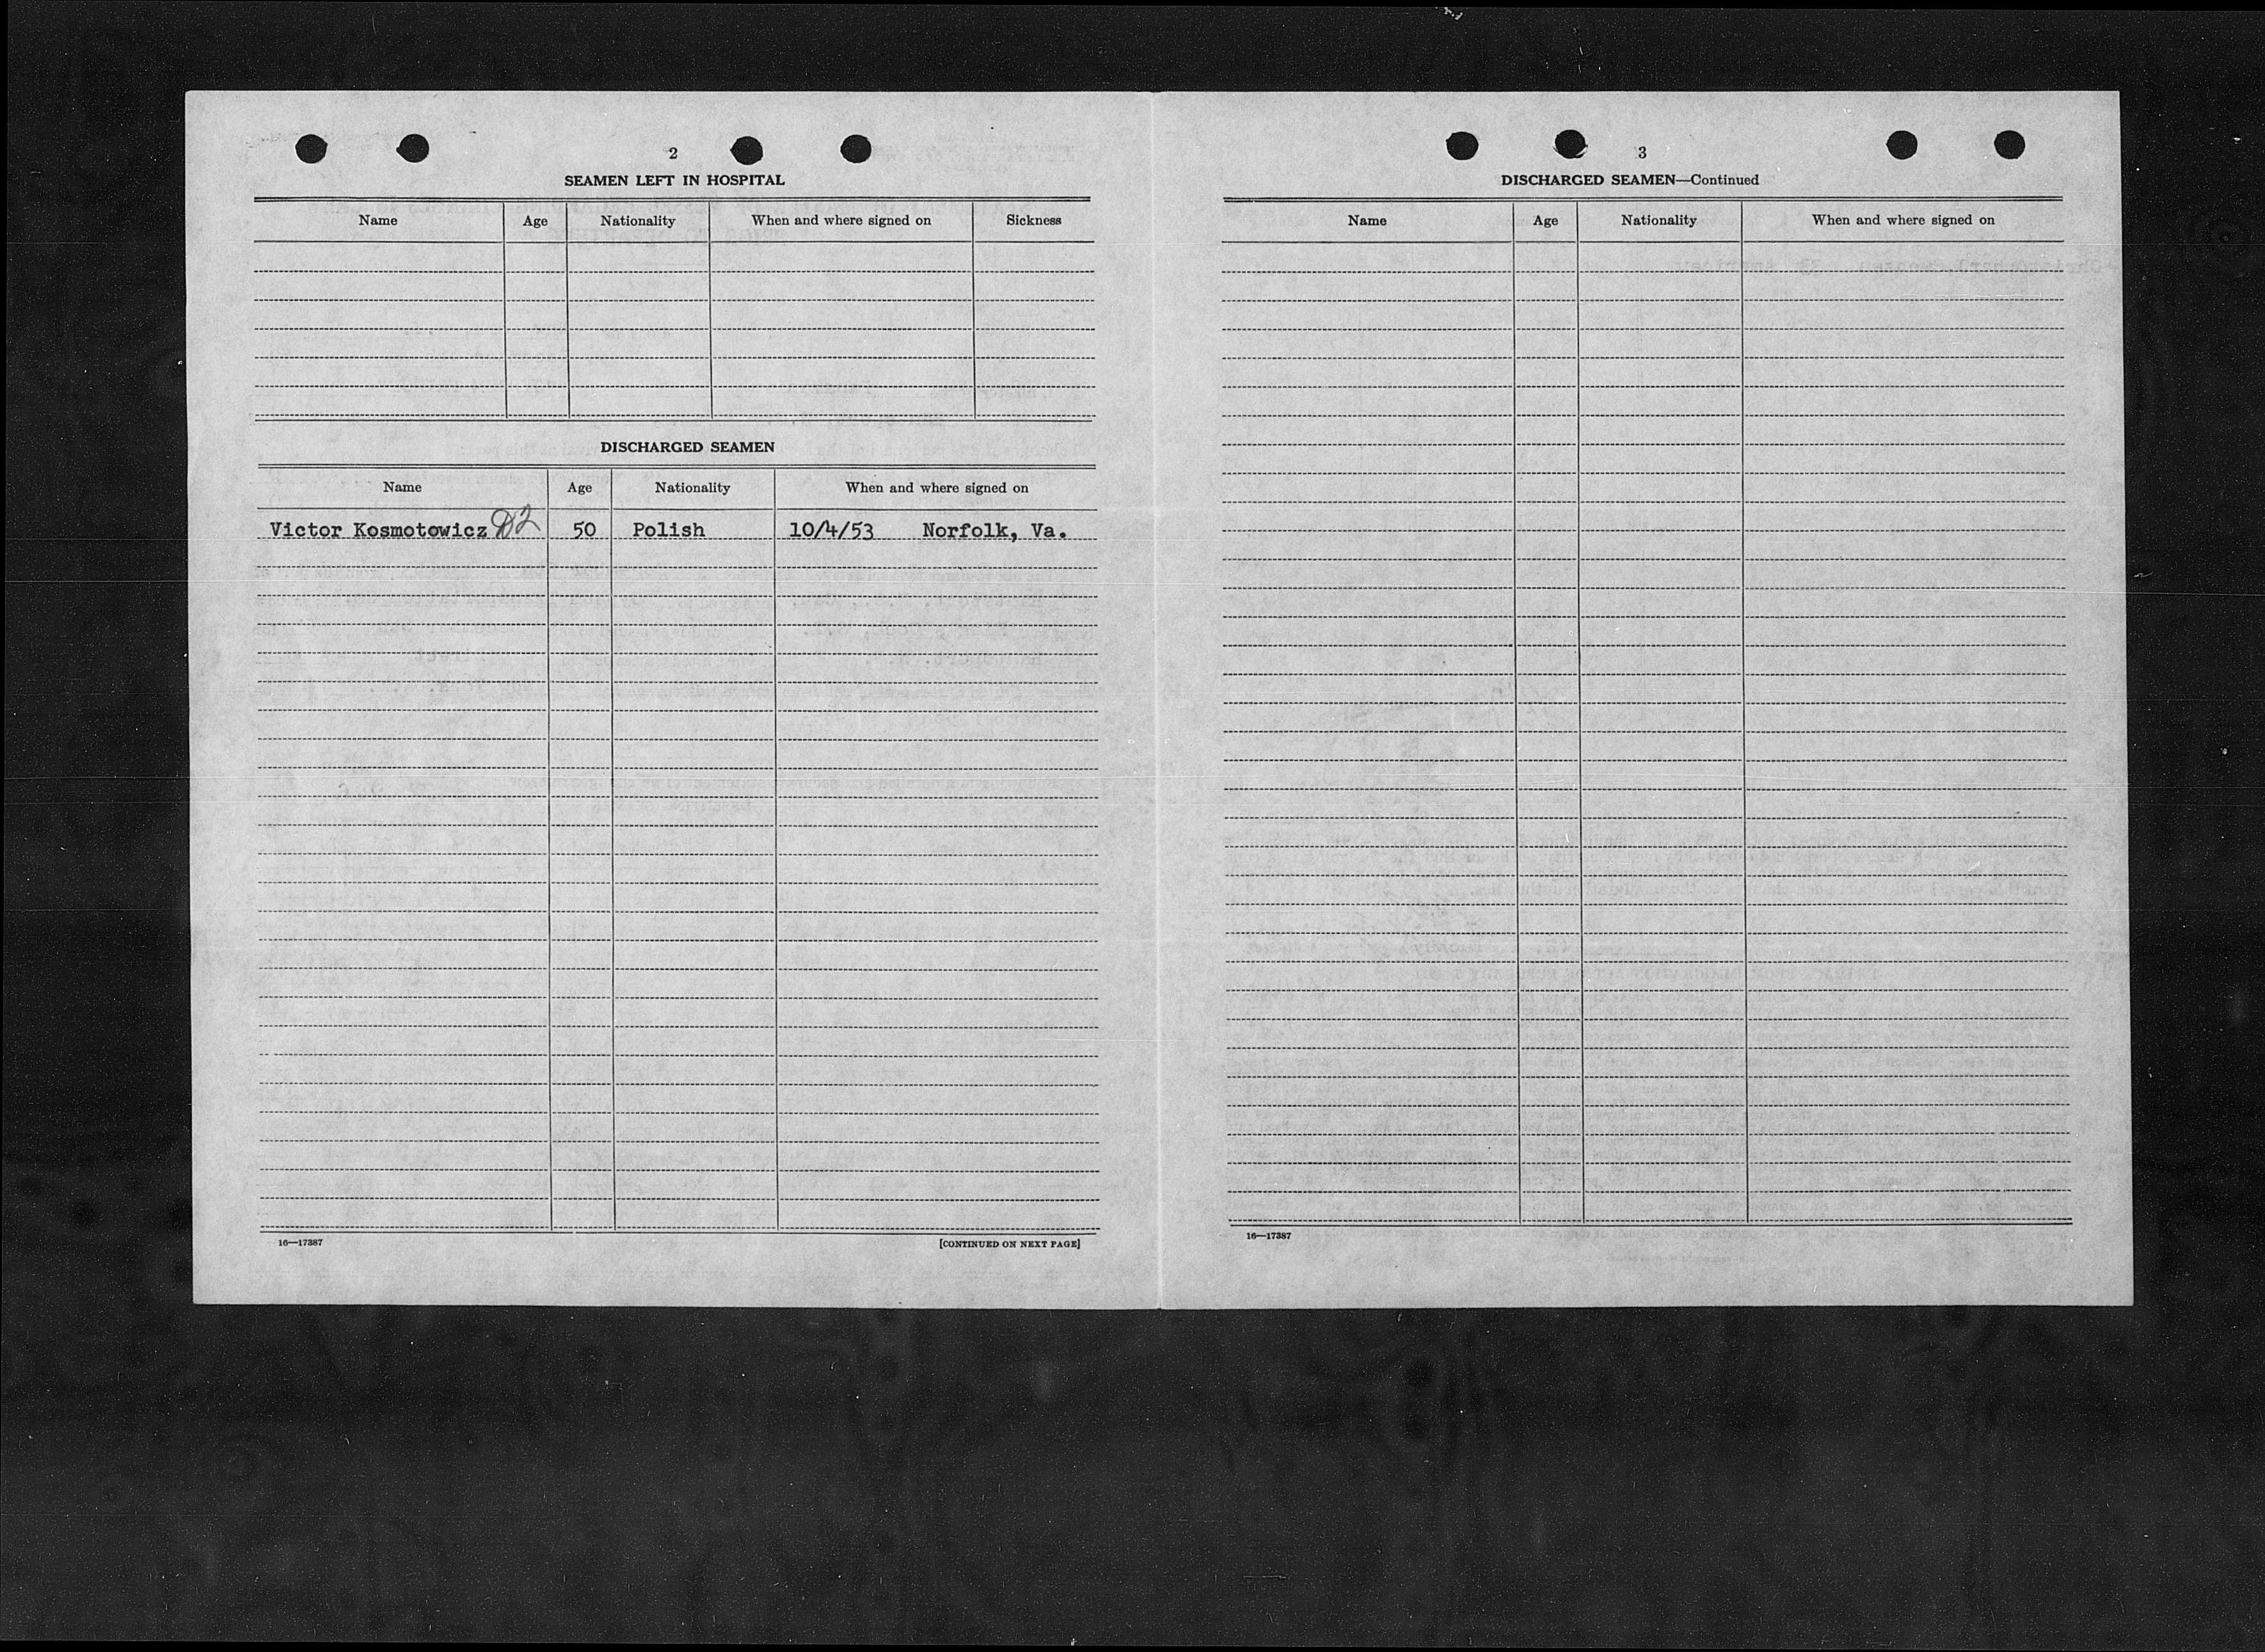 2
SEAMEN LEFT IN HOSPITAL
Name Age Nationality When and where signed on Sickness
DISCHARGED SEAMEN
Name Age Nationality When and where signed on
Victor Kosmotowicz D2 50 Polish 10/4/53 Norfolk, Va.
16—17387 [CONTINUED ON NEXT PAGE]
3
DISCHARGED SEAMEN—Continued
Name Age Nationality When and where signed on
16—17387